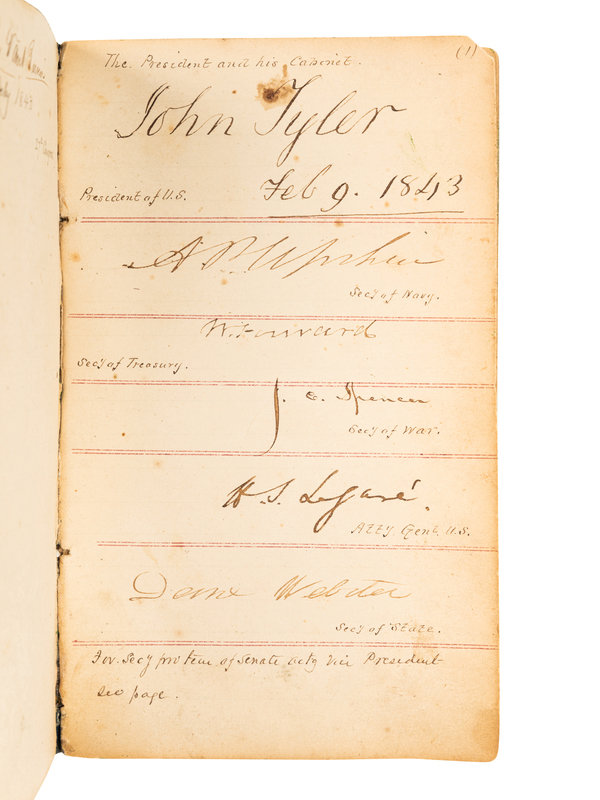 (1)
The President and his Cabinet.
John Tyler
Feb 9. 1843
President of U.S.
A. P. Upshur
Sec'y of Navy.
W. Forward
Sec'y of Treasury.
J. C. Spencer
Sec'y of War.
H. S. Legaré.
Atty. Genl. U.S.
Danl Webster
Sec'y of State.
For. Sec'y pro tem of Senate actg vice President
see page.
1843